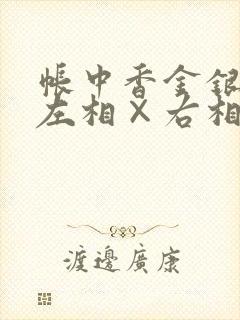 帳中香金銀
左相×右相
渡邊廣康